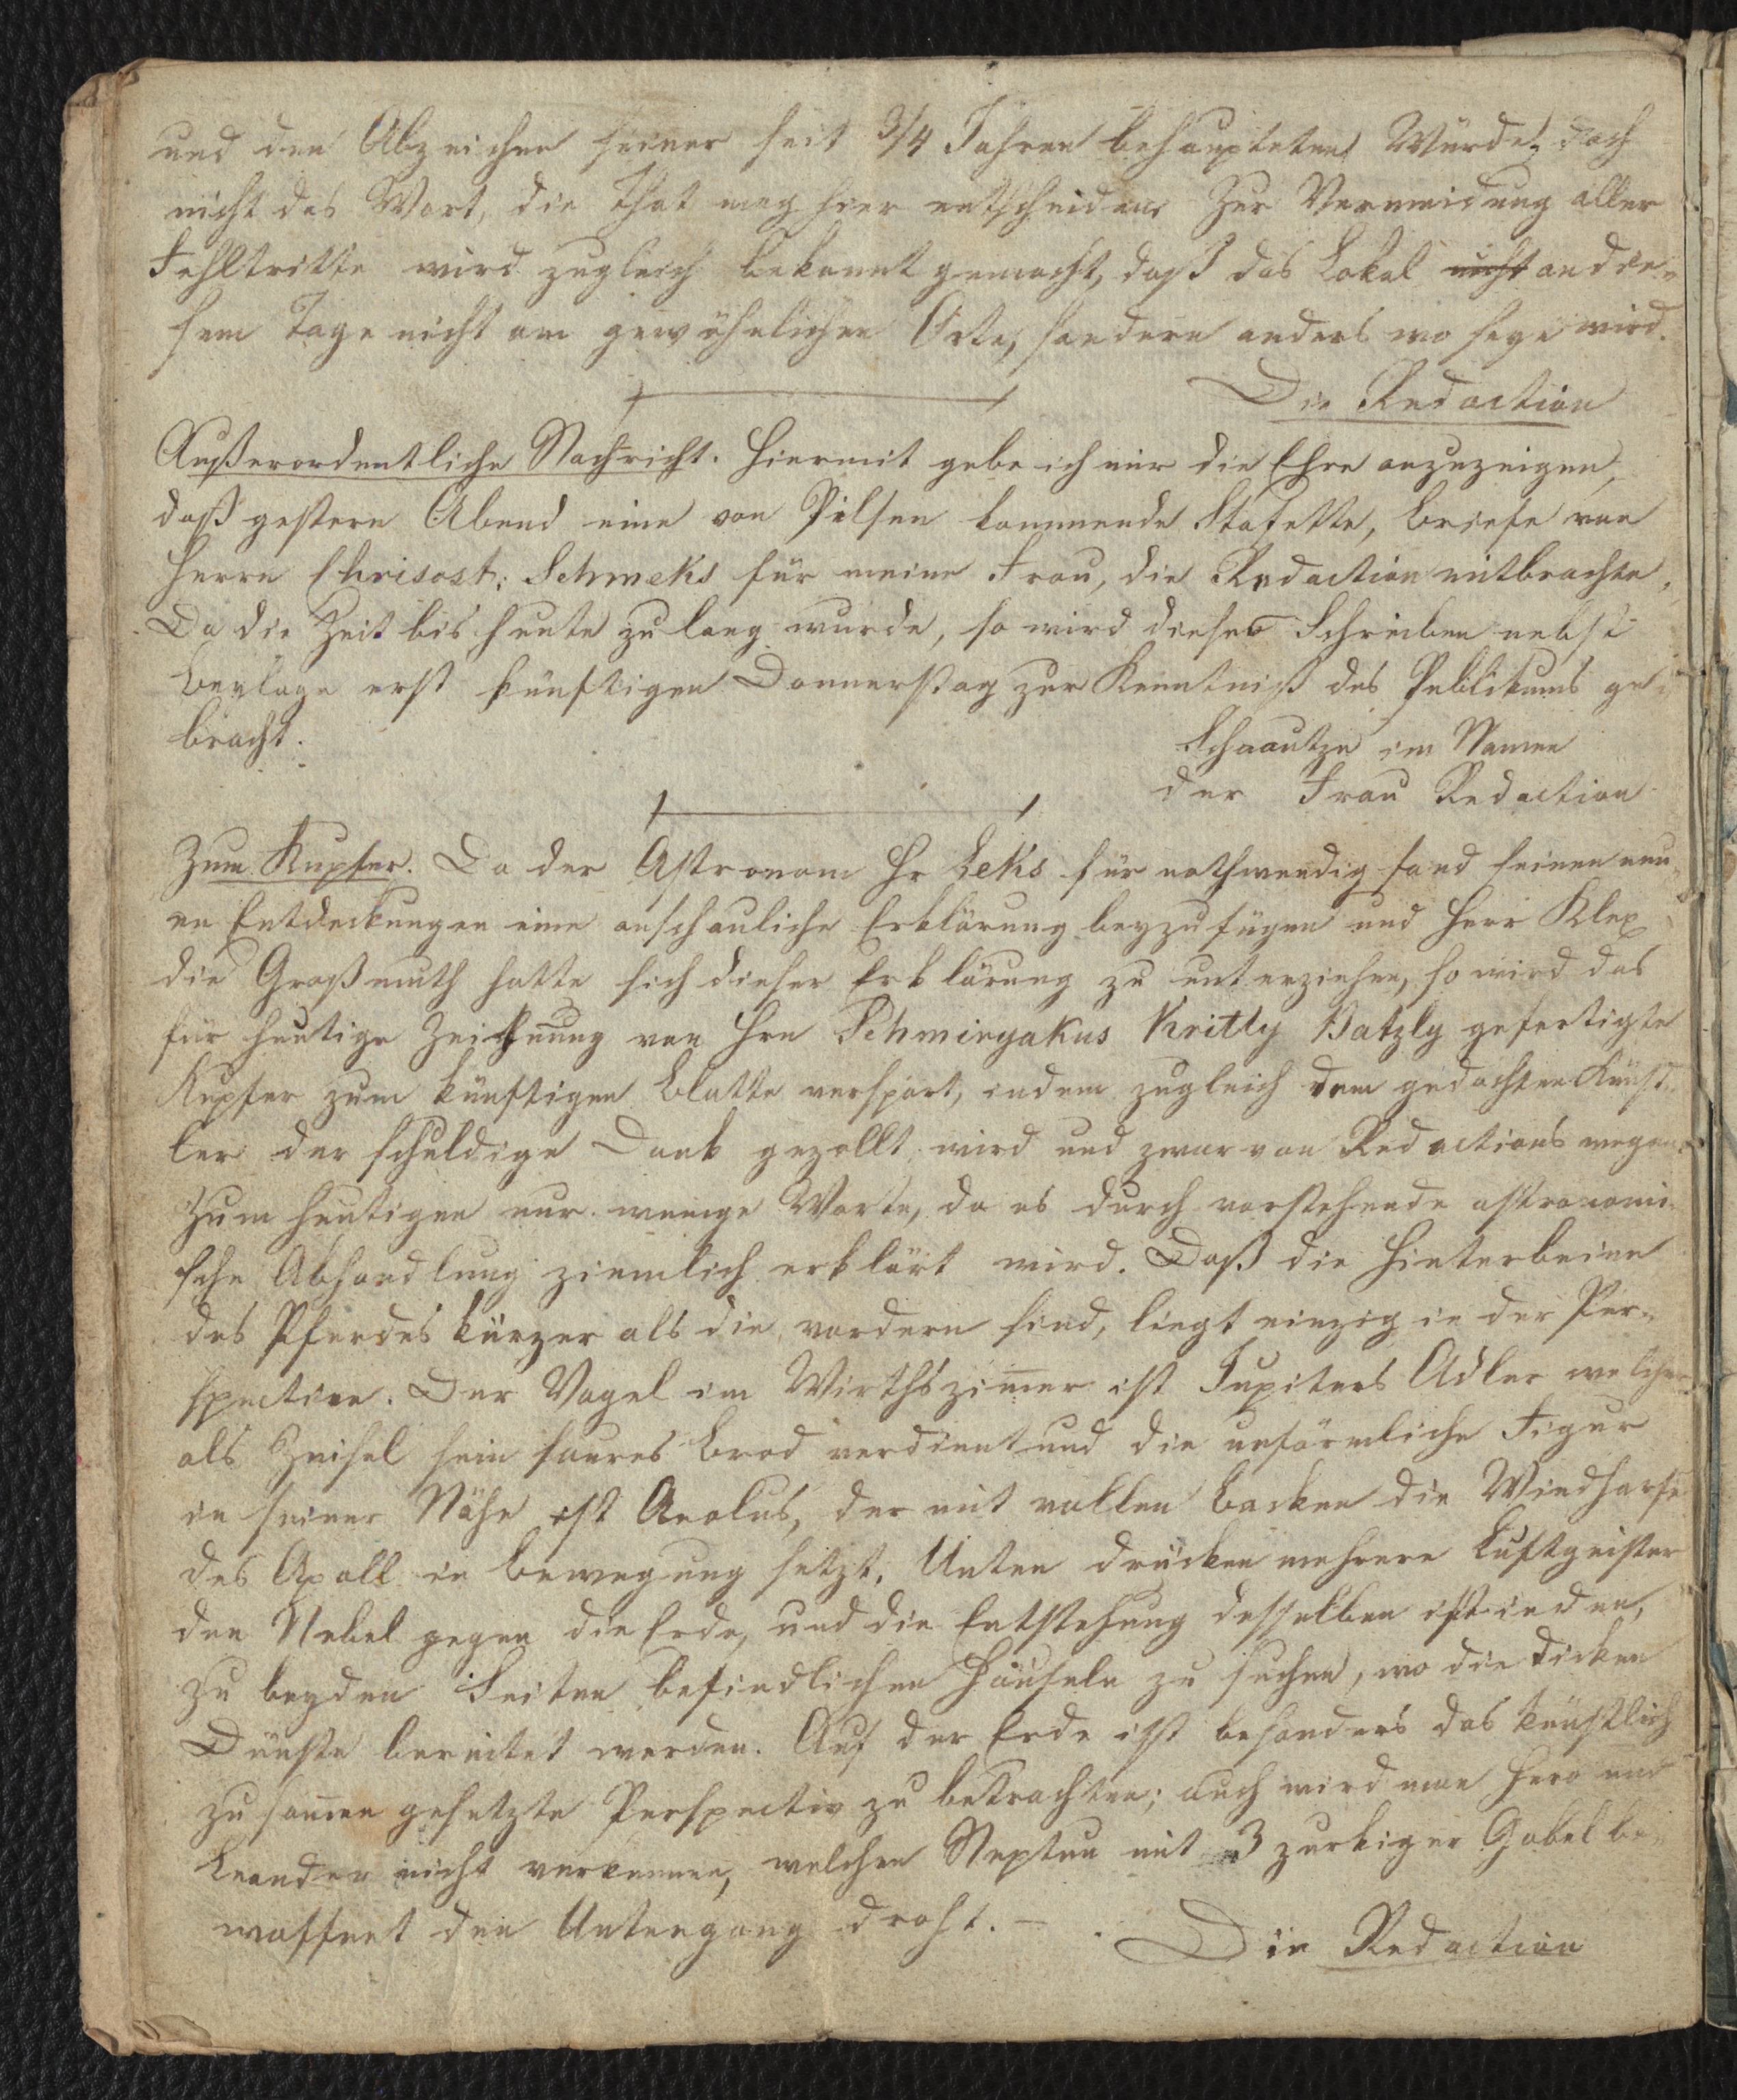 und den Abzeichen seiner seit 3/4 Jahren behaupteten Würde, doch
nicht das Wort, die That mag hier entscheiden. Zur Vermeidung aller
Fehltritte wird zugleich bekannt gemacht, daß das Lokal nicht an die-
sem Tage nicht am gewöhnlichen Orte, sondern anders wo seyn wird.
Die Redaction
Außerordentliche Nachricht. Hiermit gebe ich mir die Ehre anzuzeigen,
daß gestern Abend eine von Pilsen kommende Stafette, Briefe von
Herrn Chrisost: Schmeks für meine Frau, die Redaction mitbrachte,
Da die Zeit bis heute zu lang wurde, so wird dieses Schreiben nebst
Beylage erst künftigen Donnerstag zur Kenntniß des Publikums ge-
bracht.
Schaautze im Namen
der Frau Redaction
Zum Kupfer. Da der Astronom Hr Leks für nothwendig fand seinen neu-
en Entdeckungen eine anschauliche Erklärung beyzufügen und Herr Klex
die Großmuth hatte sich dieser Erklärung zu unterziehen, so wird das
für heutige Zeichnung von Hrn Schmiryakus Kritly Patzly gefertigte
Kupfer zum künftigen Blatte verspart, indem zugleich dem gedachten Künst-
ler der schuldige Dank gezollt wird und zwar von Redactions wegen.
Zum heutigen nur wenige Worte, da es durch vorstehende astronomi-
sche Abhandlung ziemlich erklärt wird. Daß die Hinterbeine
des Pferdes kürzer als die vordern sind, liegt einzig in der Per-
spective. Der Vogel im Wirthszim̅er ist Jupiters Adler welcher
als Zeisel sein saures Brod verdient und die unförmliche Figur
in seiner Nähe ist Aeolus, der mit vollen Backen die Windharfe
des Apoll in Bewegung setzt. Unten drücken mehrere Luftgeister
den Nebel gegen die Erde, und die Entstehung desselben ist in den,
zu beyden Seiten befindlichen Häuseln zu suchen, wo die dicken
Dünste bereitet werden. Auf der Erde ist besonders das künstlich
zusam̅en gesetzte Perspectiv zu betrachten; auch wird man Hero und
Leander nicht verkennen, welchen Neptun mit 3 zackiger Gabel be-
waffnet den Untergang droht. –
Die Redaction